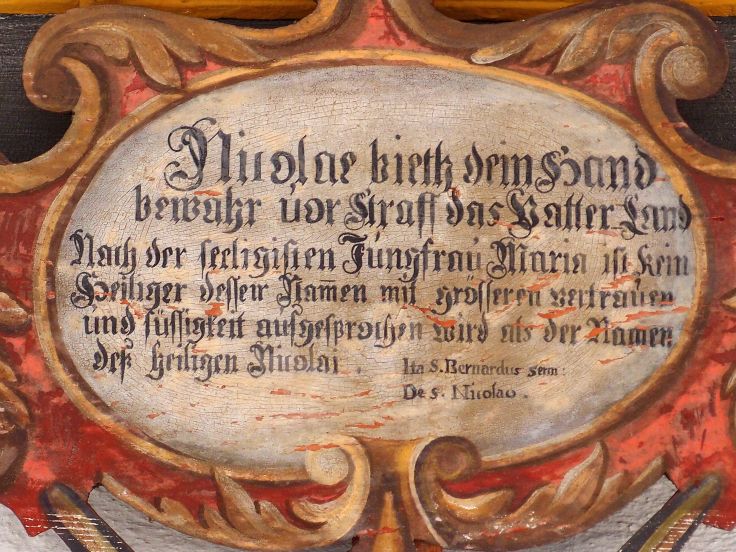 Nicolae bieth dein Hand
bewahr vor Straff das Vatter Land
Nach der seeligisten Jungfrau Maria ist kein
Heiliger dessen Nam̅en mit grösseren vertrauen
und süssigkeit ausgesprochen wird als der Namen
deß heiligen Nicolai .
Ita S. Bernardus serm:
De S. Nicolao .